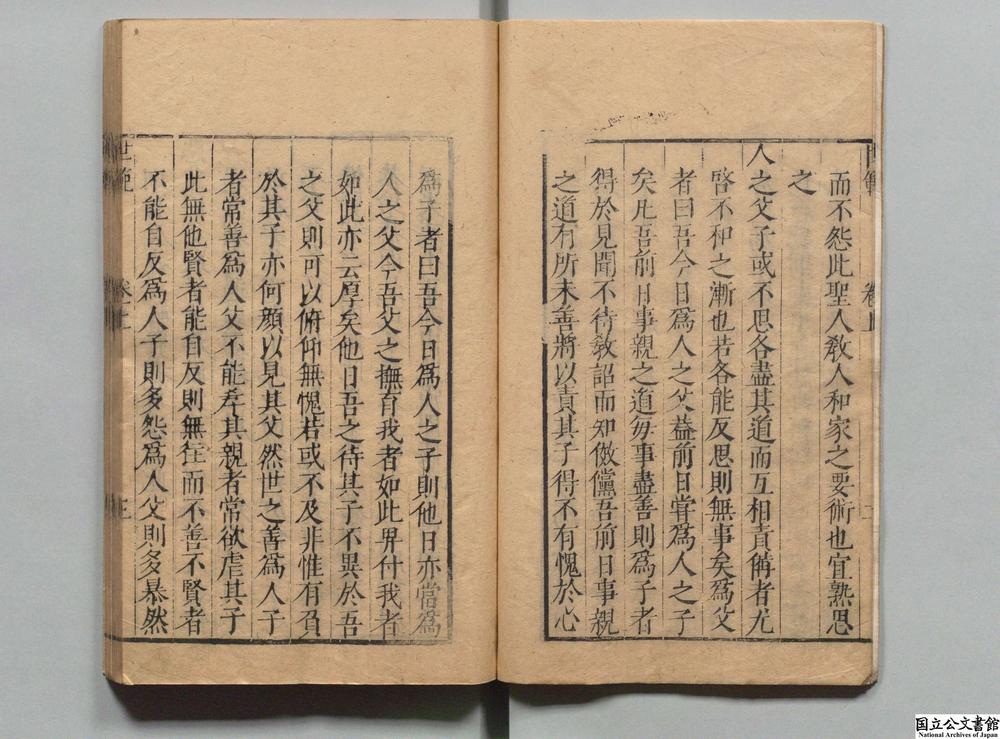 而不怨此聖人教人和家之要術也宜熟思
之
人之父子或不思各盡其道而互相責備者尤
啓不和之漸也若各能反思則無事矣為父
者曰吾今日為人之父蓋前日嘗為人之子
矣凡吾前日事親之道毎事盡善則為子者
得於見聞不待教詔而知傚儻吾前日事親
之道有所未善將以責其子得不有愧於心
為子者曰吾今日為人之子則他日亦當為
人之父今吾父之撫育我者如此畀付我者
如此亦云厚矣他日吾之待其子不異於吾
之父則可以俯仰無愧若或不及非惟有負
於其子亦何顔以見其父然世之善為人子
者常善為人父不能孝其親者常欲虐其子
此無他賢者能自反則無往而不善不賢者
不能自反為人子則多怨為人父則多暴然
世範
卷上
三
国立公文書館
National Archives of Japan